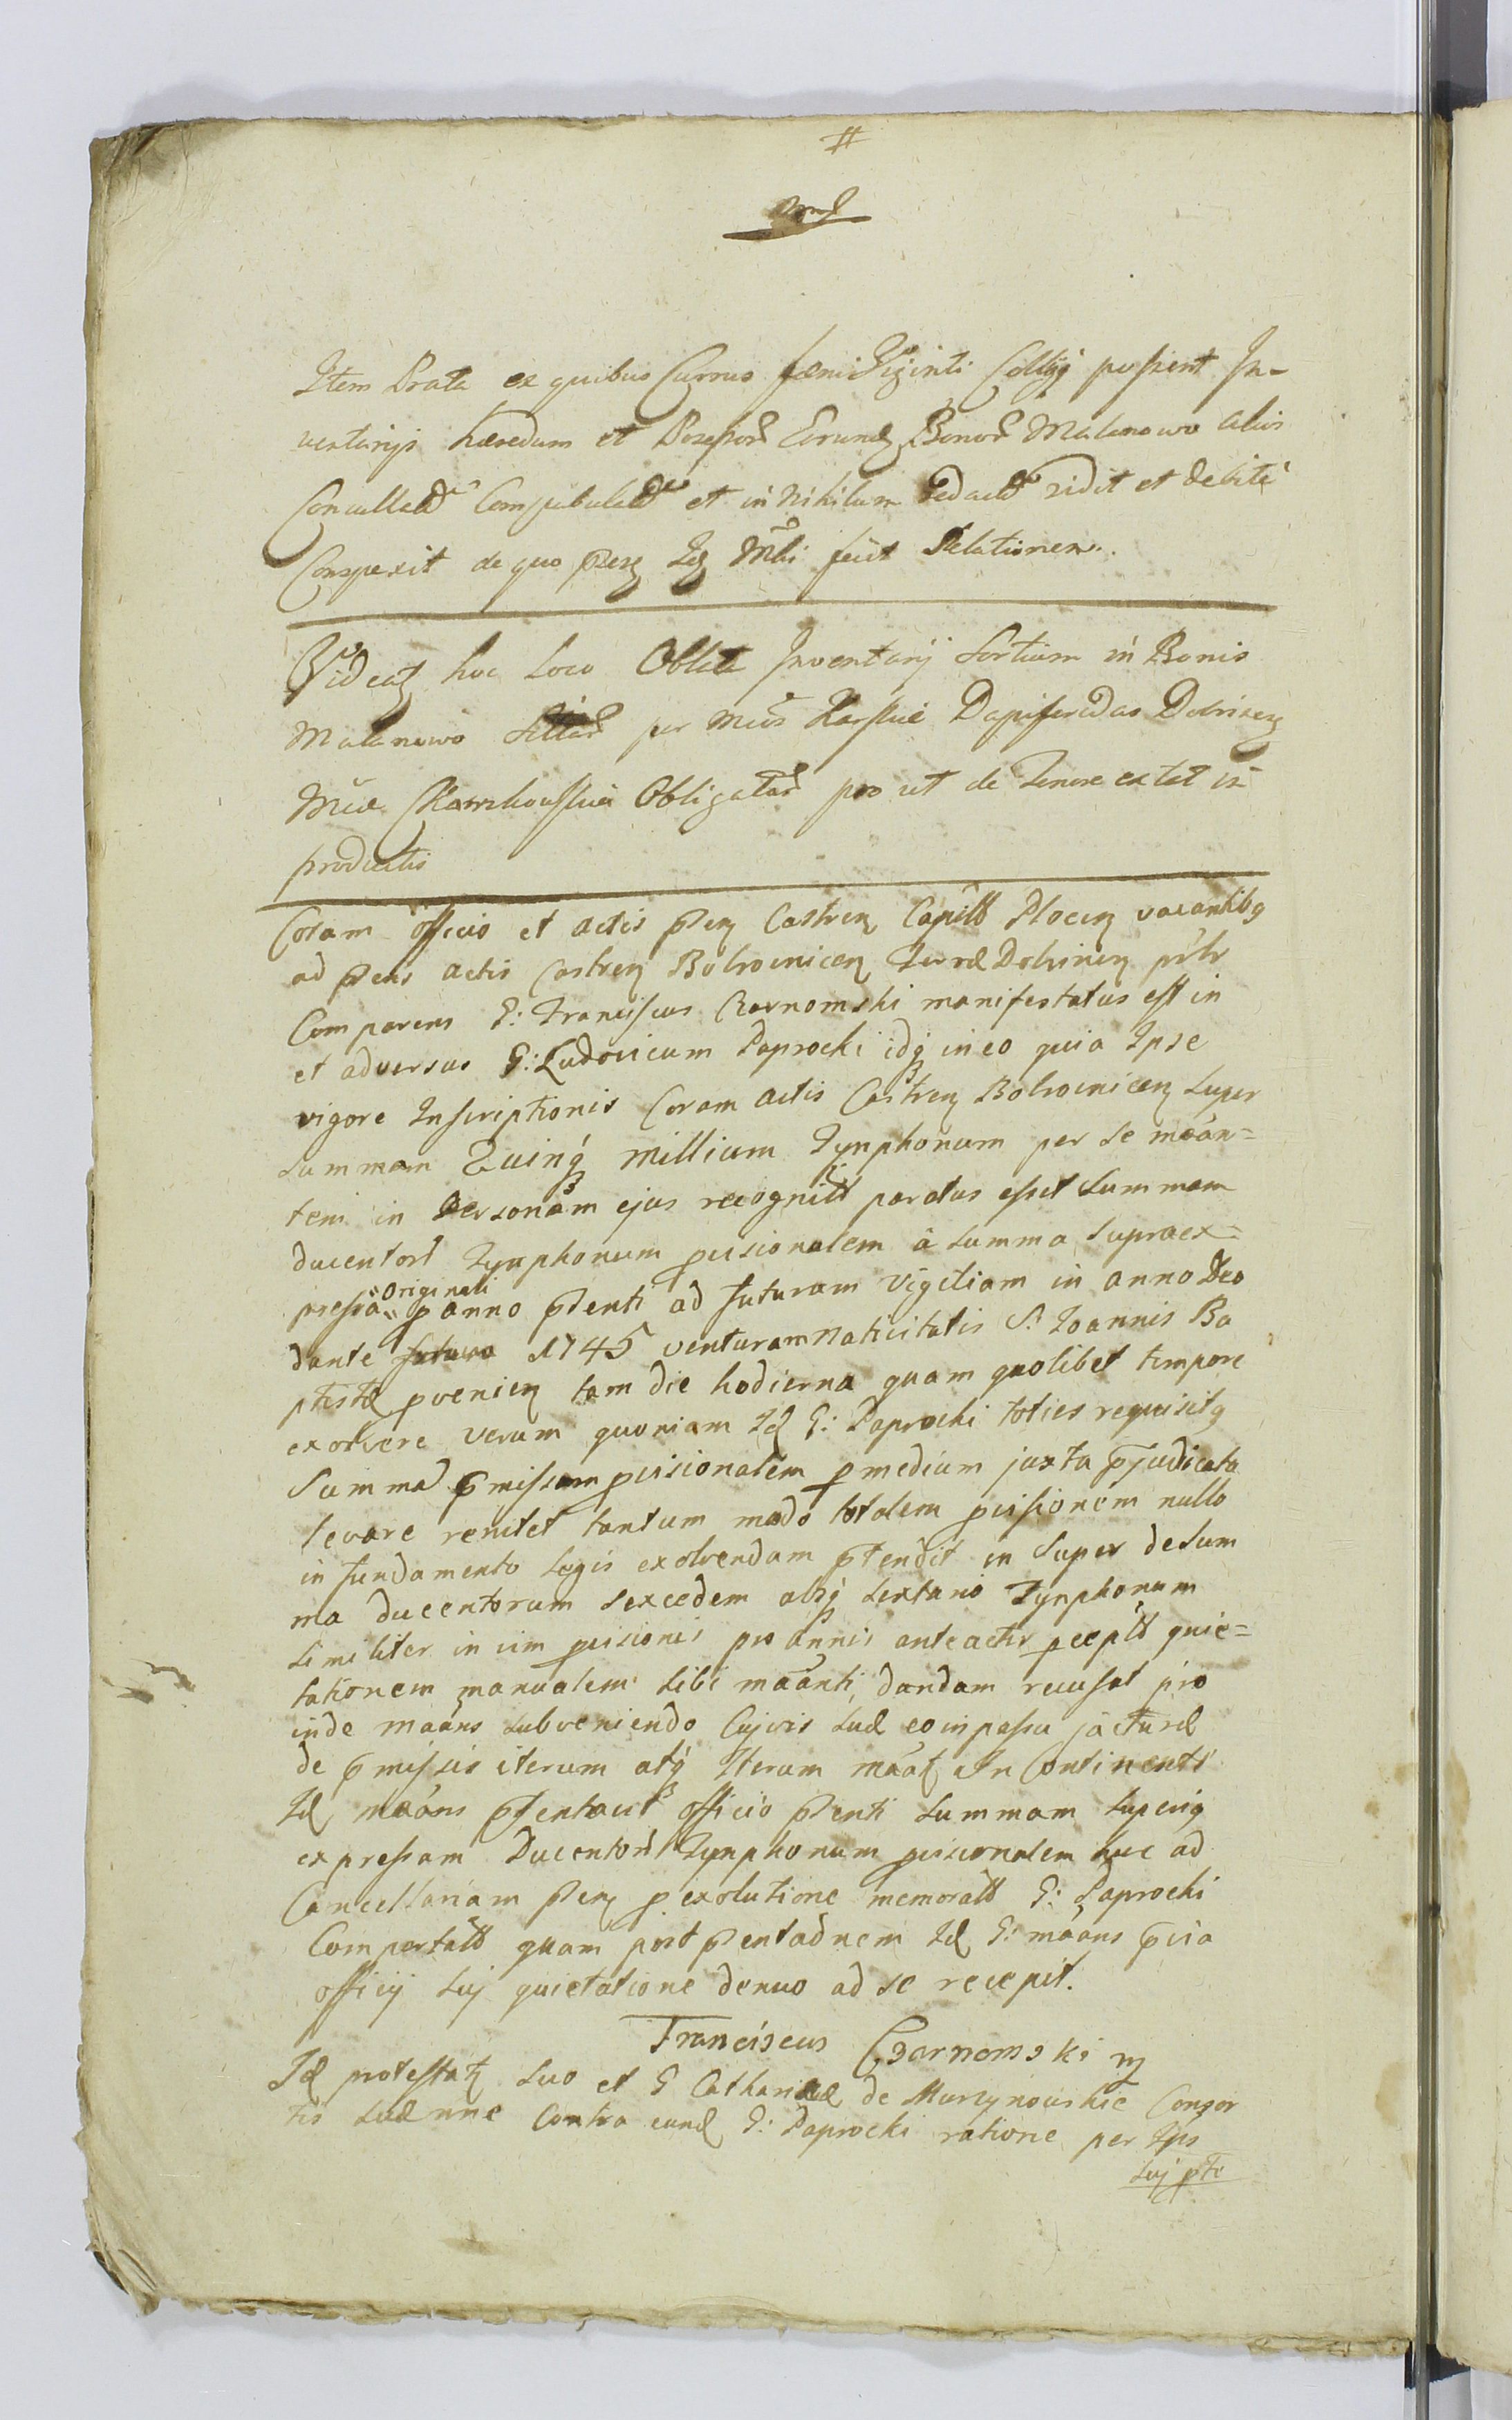 Item Prata ex quibus Currus faeni Viginti Colligi possent In-
ventarys haeredum et Possessor Eorund Bonor Malanowo alias
Conculcat Compubulat et in Nihilum redact vidit et debite
Conspexit de quo Pens Idq Mihi fecit Relationem.
Videatq hoc Loco Oblata Inventarij Sortium in Bonis
Malanowo Sittar per Mcos Karskie Dapiferidas Dobrinen
Mcae Obligatar pro ut de Tenore extat in
productis
Coram officio et actis Pten Castren Capitt Plocen vacantibq
ad Ptens actis Castren Bobrovnicen Terrae Dobrinen plr
Comparens G: Franciscus Czarnomski manifestatus est in
et adversus G: Ludovicum Paprocki idq in eo quia Ipse
vigore Inscriptionis Coram actis Castren Bobrovnicen super
summam Quinq millium Tynphonum per se maan=
tem in Personam ejus recognitt paratus esset Summam
ducentor Tynphonum pvisionalem à summa supraex=
pressa "Originali" p anno Ptenti ad futuram Vigiliam in anno Deo
dante futuro 1745 venturam Naticitatis S. Ioannis Ba
ptistae pvenien tam die hodierna quam quolibet tempore
exolvere verum quoniam Id G: Paprocki toties requisitq
Summa pmissam pvisionalem p medium juxta pjudicata
levare renitet tantum modo totalem pvisionem nullo
in fundamento Legis exolvendam ptendit in Super de sum
ma ducentorum sexcedem absq sextario Tynphonum
similiter in vim pvisionis pro annis anteactis pceptt quie=
tationem manualem sibi maanti dandam recusat pro
inde maans subveniendo Cujvis suae eo in passu jacturae
de pmissis iterum atq Iterum maat In Continenti
Id maans Ptentavit officio Ptenti summam superiq
expressam Ducentor Tynphonum pvisionalem huc ad
Cancellariam Pten p exolutione memoratt G: Paprocki
Comportatt quam post Ptentaonem Id G: maans pvia
officij sui quietatione denuo ad se recepit.
Franciscus Czarnomski m
Id protestatq suo et G Catharinae de Murzynowskie Consor
tis suae nne Contra eund G: Paprocki ratione per Ips
sui pte